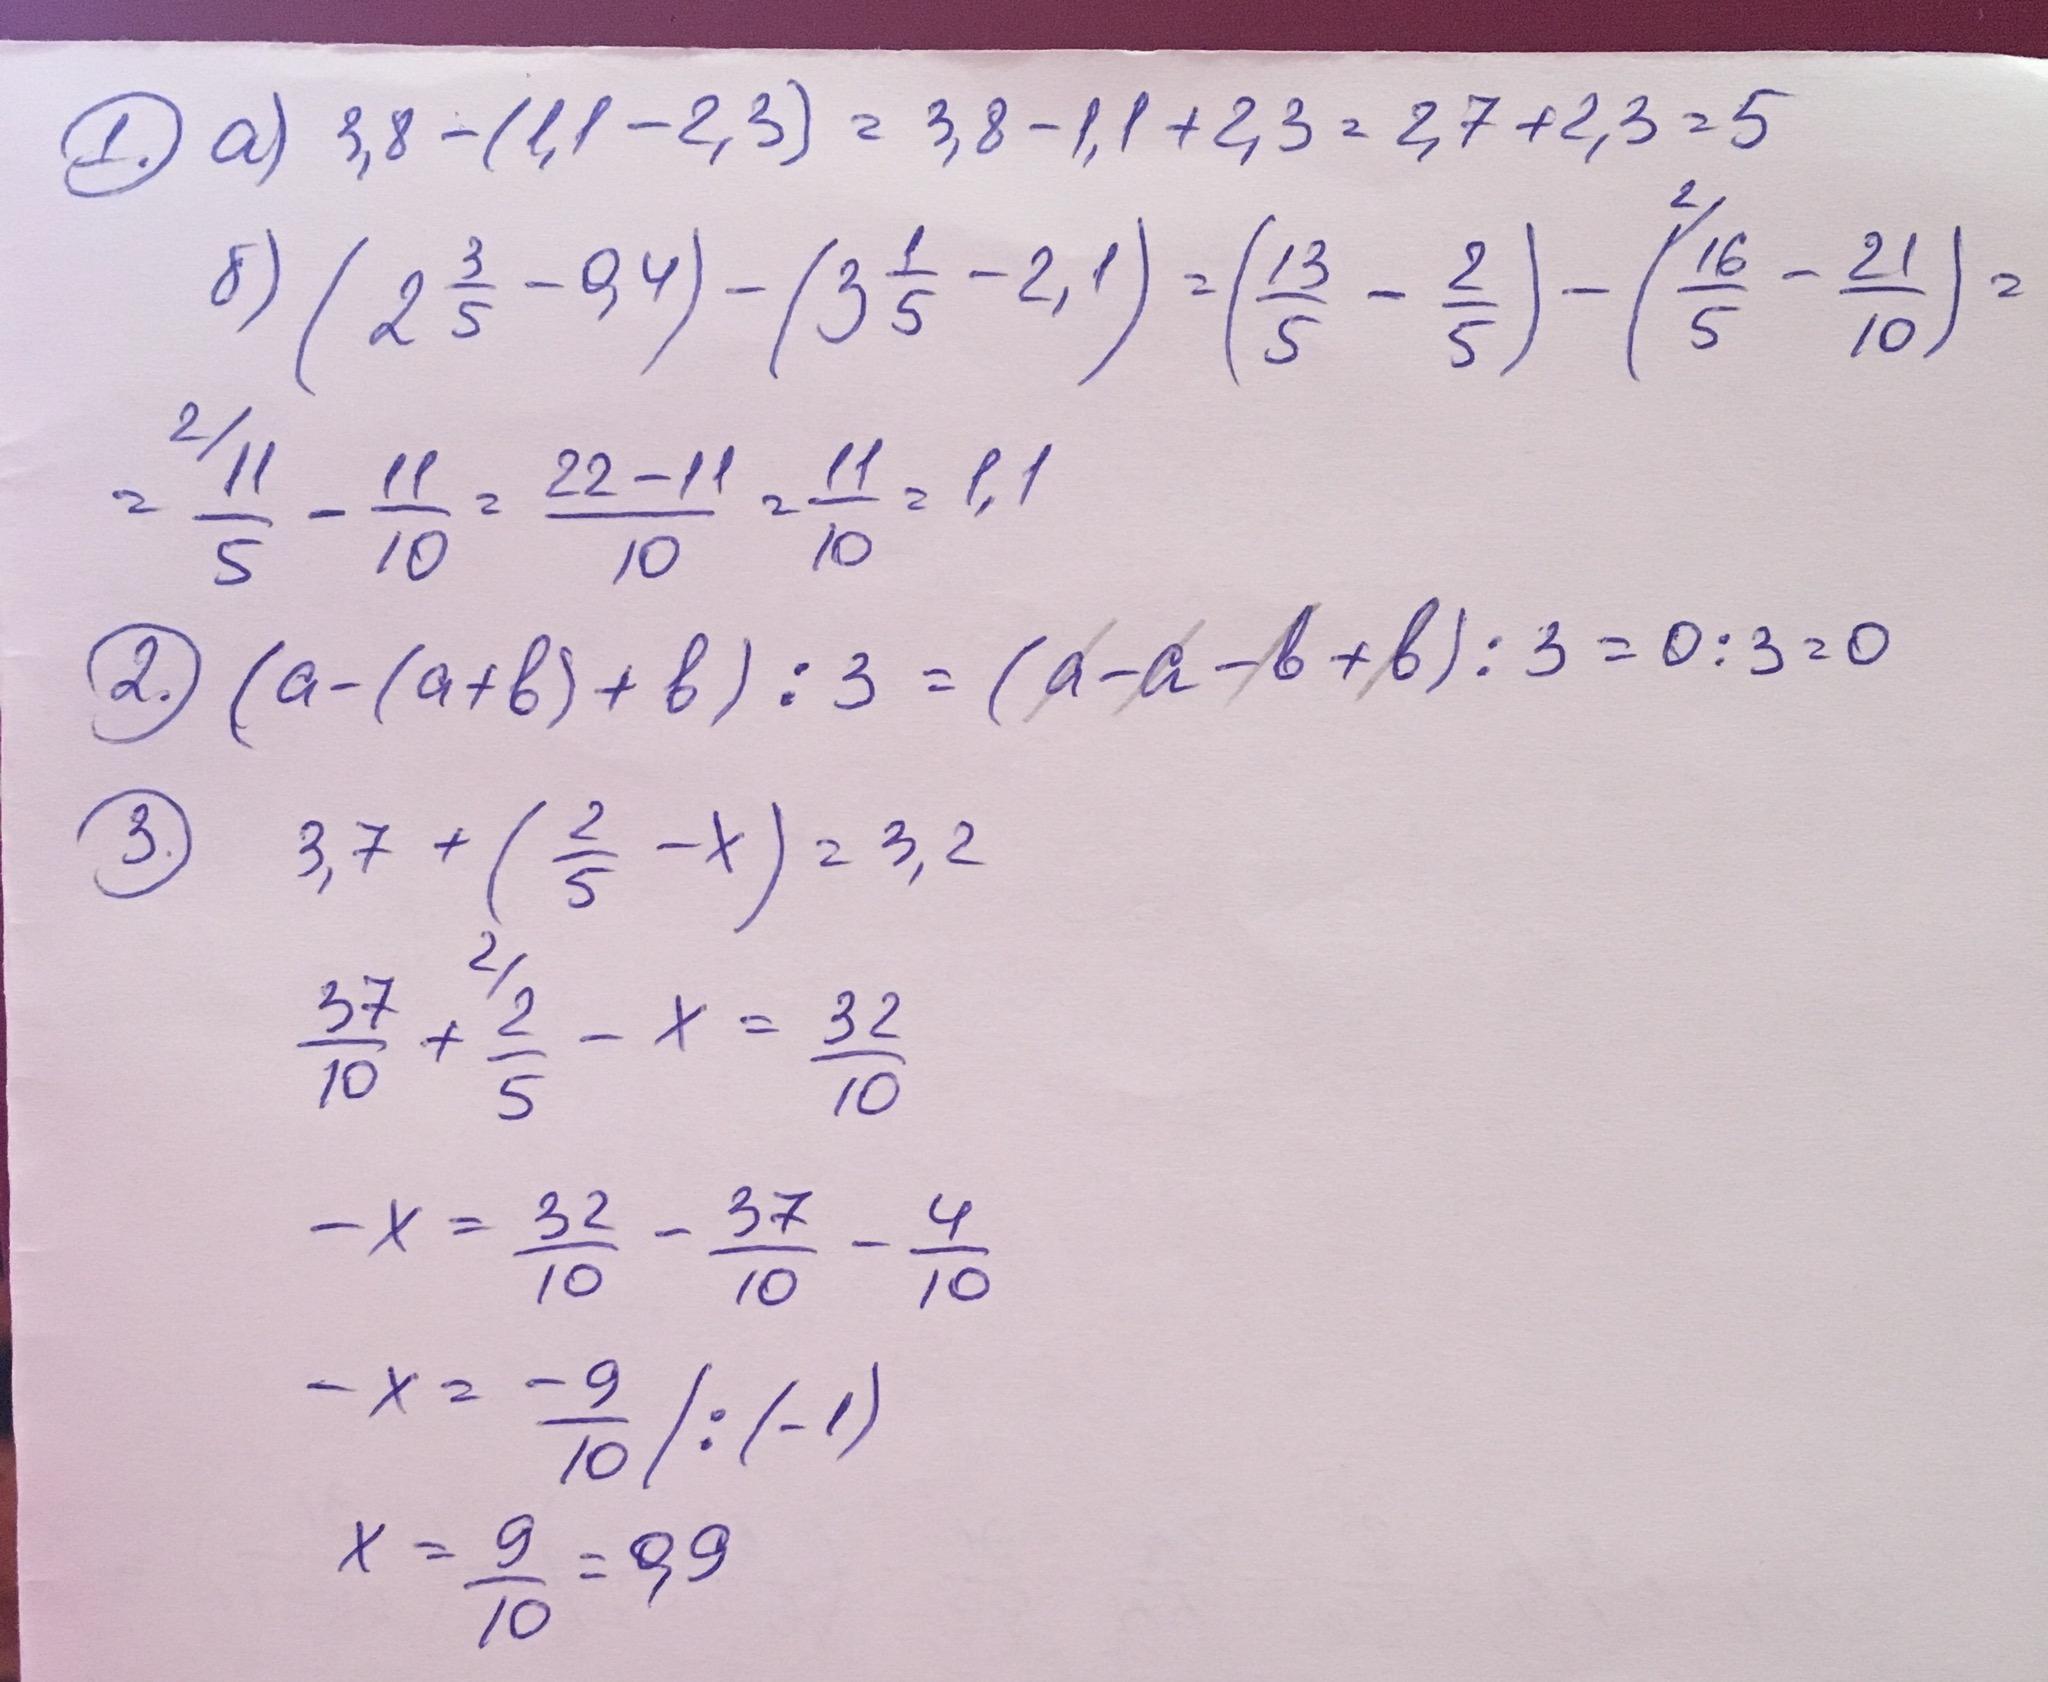 1. а) 3,8 - (1,1 - 2,3) = 3,8 - 1,1 + 2,3 = 2,7 + 2,3 = 5
б) (2 3/5 - 0,4) - (3 1/5 - 2,1) = (13/5 - 2/5) - (2/ 16/5 - 21/10) =
= 2/ 11/5 - 11/10 = (22 - 11)/10 = 11/10 = 1,1
2. (a - (a + b) + b) : 3 = (a - a - b + b) : 3 = 0 : 3 = 0
3. 3,7 + (2/5 - x) = 3,2
37/10 + 2/ 2/5 - x = 32/10
-x = 32/10 - 37/10 - 4/10
-x = -9/10 /: (-1)
x = 9/10 = 0,9